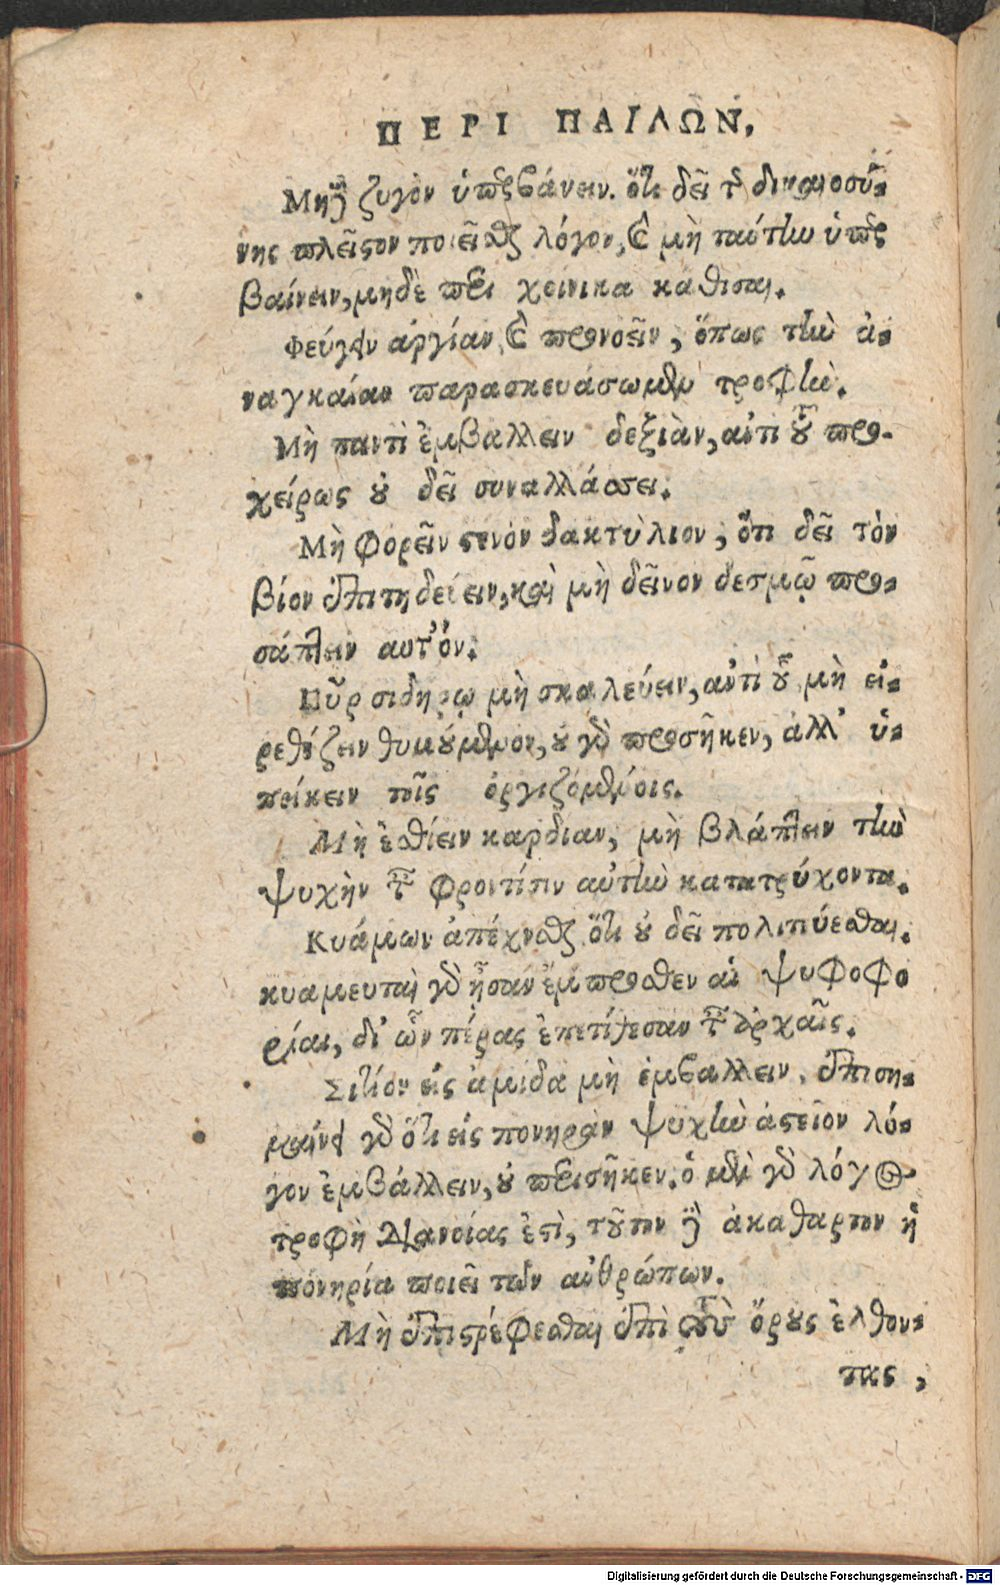 ΠΕΡΙ ΠΑΙΔΩΝ.
Μηδὲ ζυγὸν ὑπερβάνειν. ὅτι δεῖ τῆς δικαιοσύ-
νης πλεῖςον ποιεῖσθαι λόγον, καὶ μὴ ταύτην ὑπερ
βαίνειν, μηδὲ ἐπὶ χοινικα καθισαι.
Φεύγειν αργίαν, καὶ προνοεῖν, ὅπως τὴν ἀ-
ναγκαίαν παρασκευάσωμεν τροφὴν.
Μὴ παντὶ ἐμβαλλειν δεξιὰν, αὐτὶ τοῦ προ-
χείρως οὐ δεῖ συναλλάσσει.
Μὴ φορεῖν ςενὸν δακτύλιον, ὅτι δεῖ τὸν
βίον ἐπιτηδεύειν, καὶ μὴ δεῖνον δεσμῷ προ-
σάπτειν αυτόν.
Πῦρ σιδηρῳ μὴ σκαλεύειν, αὐτὶ τοῦ, μὴ ει-
ρεθίζειν θυμούμενον, οὐ γὰρ προσῆκεν, ἀλλ' ὑ-
πείκειν τοῖς ὀργιζομένοις.
Μὴ ἐσθίειν καρδίαν, μὴ βλάπτειν τὴν
ψυχὴν ταῖς φροντίσιν αὐτὴν κατατρύχοντα.
Κυάμων ἀπέχεσθαι, ὅτι οὐ δεῖ πολιτεύεσθαι.
κυαμευταὶ γὰρ ἦσαν ἔμπροσθεν αἱ ψυφοφο
ρίαι, δι' ὧν πέρας ἐπετίθεσαν ταῖς ἀρχαῖς.
Σιτίον εἰς ἀμιδα μὴ ἐμβαλλειν. ἐπιση-
μαίνει γὰρ ὅτι εἰς πονηρὰν ψυχὴν ἀςεῖον λό-
γον ἐμβάλλειν, οὐ προσῆκεν. ὁ μὲν γὰρ λόγος
τροφὴ διανοίας ἐςὶ, τοῦτον δὲ ἀκαθαρτον ἡ
πονηρία ποιεῖ τῶν αὐθρώπων.
Μὴ ἐπιςρέφεσθαι ἐπὶ τοὺς ὅρους ἐλθον-
τας,
Digitalisierung gefördert durch die Deutsche Forschungsgemeinschaft - DFG